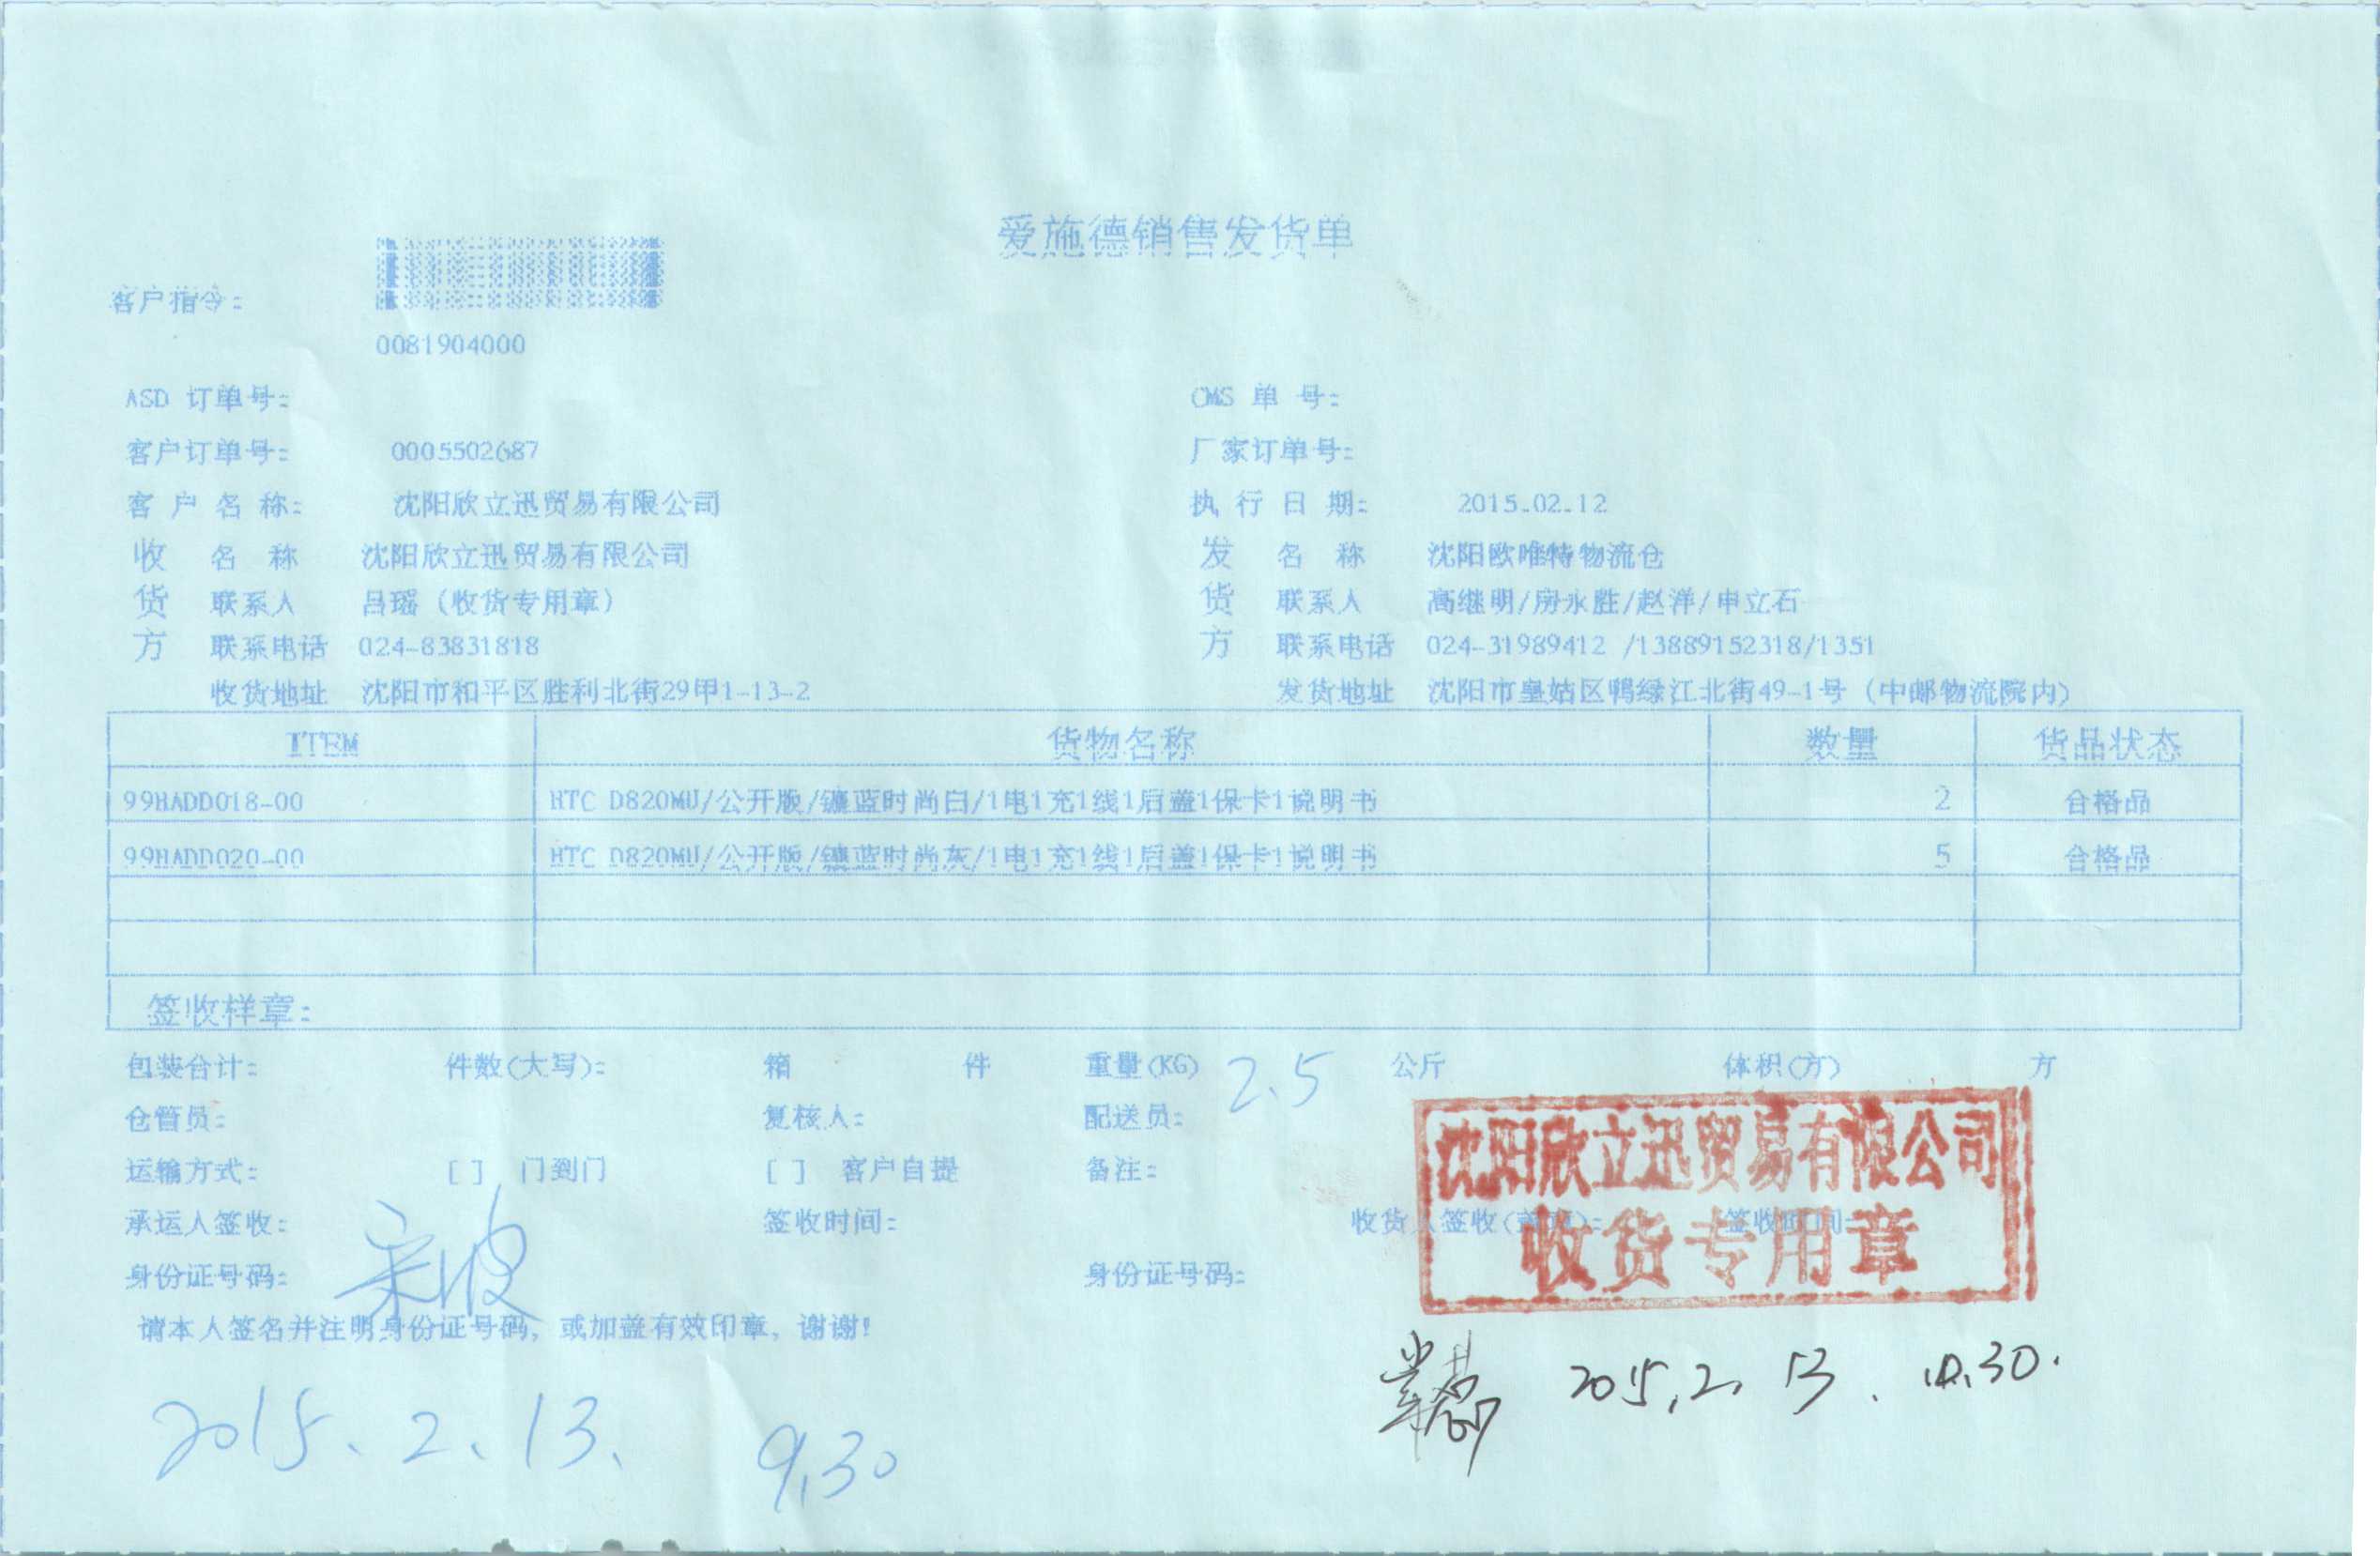 爱施德销售发货单
客户指令:
0081904000
ASD 订单号: CMS 单 号:
客户订单号: 0005502687 厂家订单号:
客 户 名 称: 沈阳欣立迅贸易有限公司 执 行 日 期: 2015.02.12
收 名 称 沈阳欣立迅贸易有限公司 发 名 称 沈阳欧唯特物流仓
货 联系人 吕瑶 (收货专用章) 货 联系人 高继明/房永胜/赵洋/申立石
方 联系电话 024-83831818 方 联系电话 024-31989412 /13889152318/1351
收货地址 沈阳市和平区胜利北街29甲1-13-2 发货地址 沈阳市皇姑区鸭绿江北街49-1号 (中邮物流院内)
ITEM 货物名称 数量 货品状态
99HADD018-00 HTC D820MU/公开版/镶蓝时尚白/1电1充1线1后盖1保卡1说明书 2 合格品
99HADD020-00 HTC D820MU/公开版/镶蓝时尚灰/1电1充1线1后盖1保卡1说明书 5 合格品
签收样章:
包装合计: 件数(大写): 箱 件 重量(KG) 2.5 公斤 体积(方) 方
仓管员: 复核人: 配送员:
运输方式: [ ] 门到门 [ ] 客户自提 备注:
承运人签收: 宋波 签收时间: 收货人签收(盖章): 签收时间:
身份证号码: 身份证号码:
沈阳欣立迅贸易有限公司
收货专用章
请本人签名并注明身份证号码, 或加盖有效印章, 谢谢!
2015.2.13. 10.30.
2015.2.13. 9.30